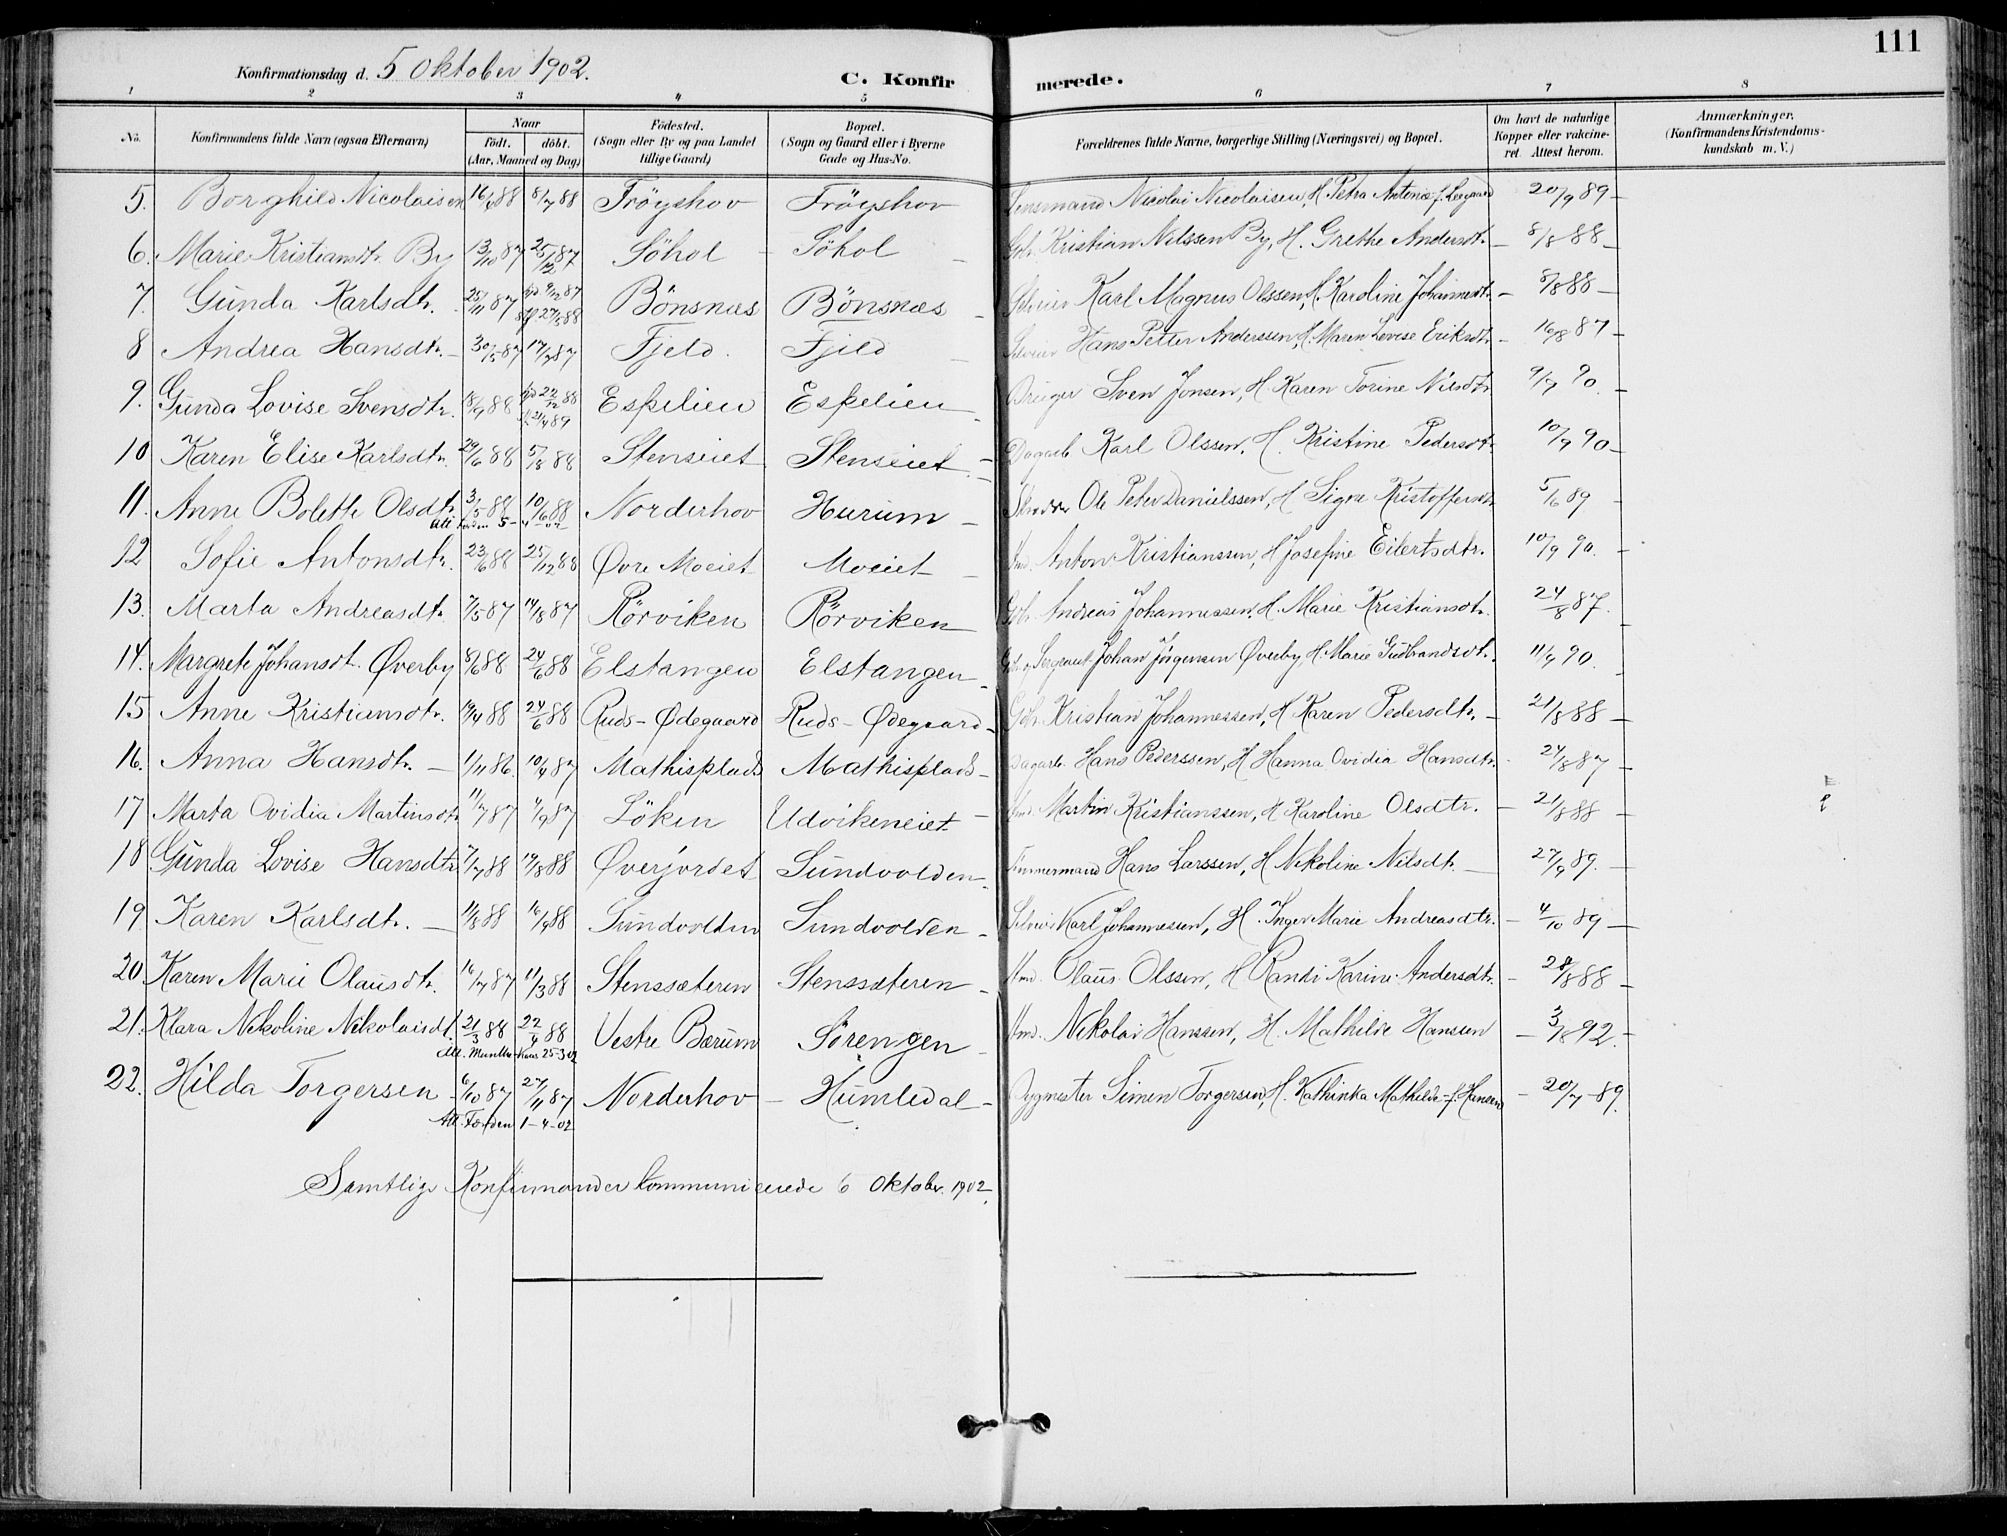 111
Konfirmationsdag d. 5 Oktober 1902.
C. Konfirmerede.
1 2 3 4 5 6 7 8
No.
Konfirmandens fulde Navn (ogsaa Efternavn)
Naar
födt. döbt.
(Aar, Maaned og Dag)
Födested.
(Sogn eller By og paa Landet
tillige Gaard)
Bopæl.
(Sogn og Gaard eller i Byerne
Gade og Hus-No.
Forældrenes fulde Navne, borgerlige Stilling (Næringsvei) og Bopæl.
Om havt de naturlige
Kopper eller vakcine-
ret. Attest herom.
Anmærkninger.
(Konfirmandens Kristendoms-
kundskab m. V.)
5. Borghild Nicolaisen 16/4 88 8/7 88 Fröyshov Fröyshov Lensmand Nicolai Nicolaisen, H. Petra Antonie f. 20/9 89 –
6. Marie Kristiansdt. By 13/10 87 25/12 87 Söhol – Söhol – Gbr. Kristian Nilssen By, H. Grethe Andersdt. – 8/8 88 –
7. Gunda Karlsdt. 25/11 87 9/12 87 27/5 88 Bönsnæs Bönsnæs – Selveier Karl Magnus Olssen, H. Karoline Johannesdt. – 8/8 88 –
8 Andrea Hansdt. – 30/5 87 17/7 87 Fjeld. Fjeld – Selveier Hans Petter Anderssen, H. Maren Lovise Eriksdt. – 16/8 87 –
9. Gunda Lovise Svensdtr. 18/9 88 22/12 88 21/4 89 Espelien Espelien – Bruger Sven Jonsen, H. Karen Torine Nilsdt. 9/7 90. –
10 Karen Elise Karlsdt. 29/6 88 5/8 88 Stenseiet Stenseiet – Dagarb. Karl Olssen, H. Kristine Pedersdt. 10/9 90 –
11. Anne Bolette Olsdt. 3/5 88 10/6 88 Norderhov Hurum – Ole Peter Danielssen, H. Signe Kristoffersdt. 5/6 89 –
12 Sofie Antonsdt. 23/6 88 25/12 88 Øvre Moeiet Moeiet – Hmd. Anton Kristianssen, H. Josefine Eilertsdtr. 10/9 90. –
13. Marta Andreasdt. 7/5 87 14/8 87 Rörviken Rörviken Gbr. Andreas Johannessen, H. Marie Kristiansdt. 24/8 87. –
14. Margrete Johansdt. Øverby 8/6 88 24/6 88 Elstangen Elstangen – Gbr. og Sergeant Johan Jörgensen Øverby, H. Marie Gudbrandsdt. 11/9 90. –
15 Anne Kristiansdt. 19/4 88 24/6 88 Ruds-Ødegaard Ruds-Ødegaard – Gbr. Kristian Johannessen, H. Karen Pedersdt. – 21/8 88 –
16. Anna Hansdt. – 1/11 86. 10/4 87 Mathisplads Mathisplads – Dagarb. Hans Pederssen, H. Hanna Ovidia Hansdt. 24/8 87 –
17 Marta Ovidia Martinsdt. 11/7 87 4/9 87 Löken Udvikeneiet – Hmd. Martin Kristianssen, H. Karoline Olsdtr. – 21/8 88 –
18 Gunda Lovise Hansdtr. 7/7 88 19/8 88 Øverjordet Sundvolden – Tömmermand Hans Larssen, H. Nikoline Nilsdt. – 27/9 89. –
19. Karen Karlsdt. – 11/8 88 16/9 88 Sundvolden Sundvolden – Selveier Karl Johannessen, H. Inger Marie Andreasdtr. – 4/10 89 –
20. Karen Marie Olausdt. 16/7 87 11/3 88 Stenssæteren Stenssæteren – Hmd. Olaus Olssen, H. Randi Karine Andersdt. – 28/8 88 –
21. Klara Nikoline Nikolaisdt. 21/3 88 22/4 88 Vestre Bærum Sörengen – Hmd. Nikolai Hanssen, H. Mathilde Hansen – 3/8 92. –
Att. 25-3 02
22. Hilda Torgersen 6/10 87 27/11 87 Norderhov – Humledal – Bygmester Simen Torgersen, H. Kathinka Mathilde f. Hansen – 20/7 – 89.
Att. Forden 1-4-02
Samtlige Konfirmander kommunicerede 6 Oktober 1902.